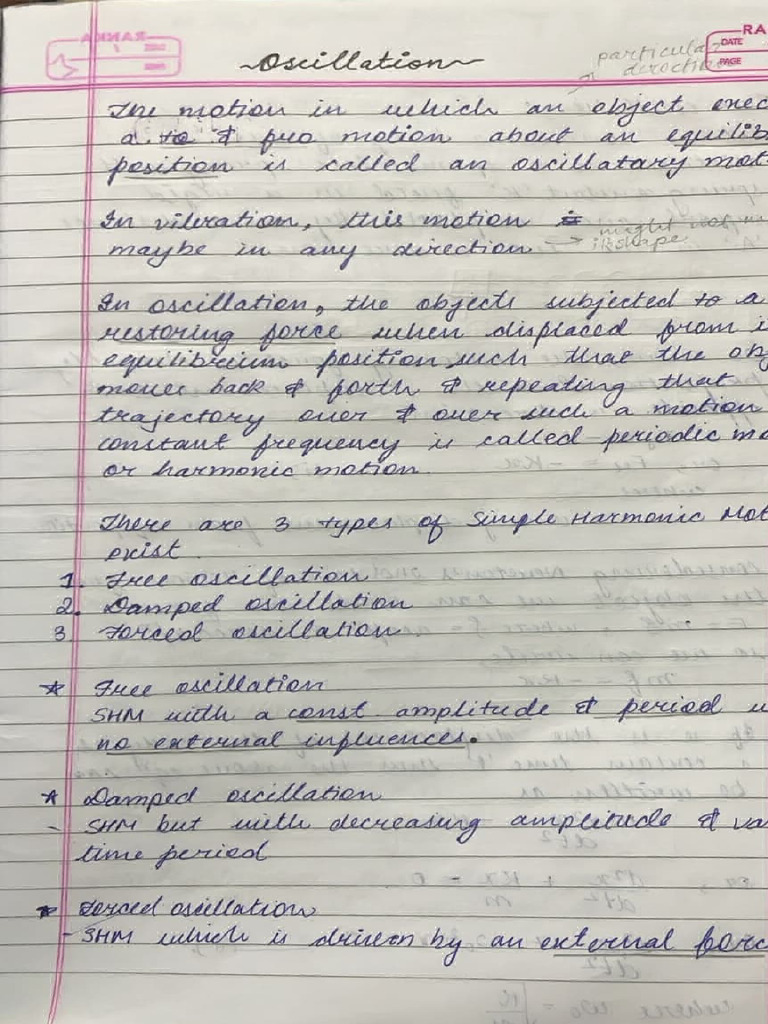 RANKA
RA
DATE
PAGE
~Oscillation~
particular
direction
The motion in which an object exec
a to & fro motion about an equilib
position is called an oscillatary mot
In vibration, this motion
maybe in any direction → might not
in shape
In oscillation, the objects subjected to a
restoring force when displaced from i
equilibrium position such that the obj
moves back & forth & repeating that
trajectory over & over such a motion
constant frequency is called periodic mo
or harmonic motion.
There are 3 types of Simple Harmonic Mot
exist.
1. Free oscillation
2. Damped oscillation
3. Forced oscillation
★ Free oscillation
SHM with a const amplitude & period w
no external influences.
★ Damped oscillation
- SHM but with decreasing amplitude & va
time period
★ Forced oscillation
- SHM which is driven by an external forc